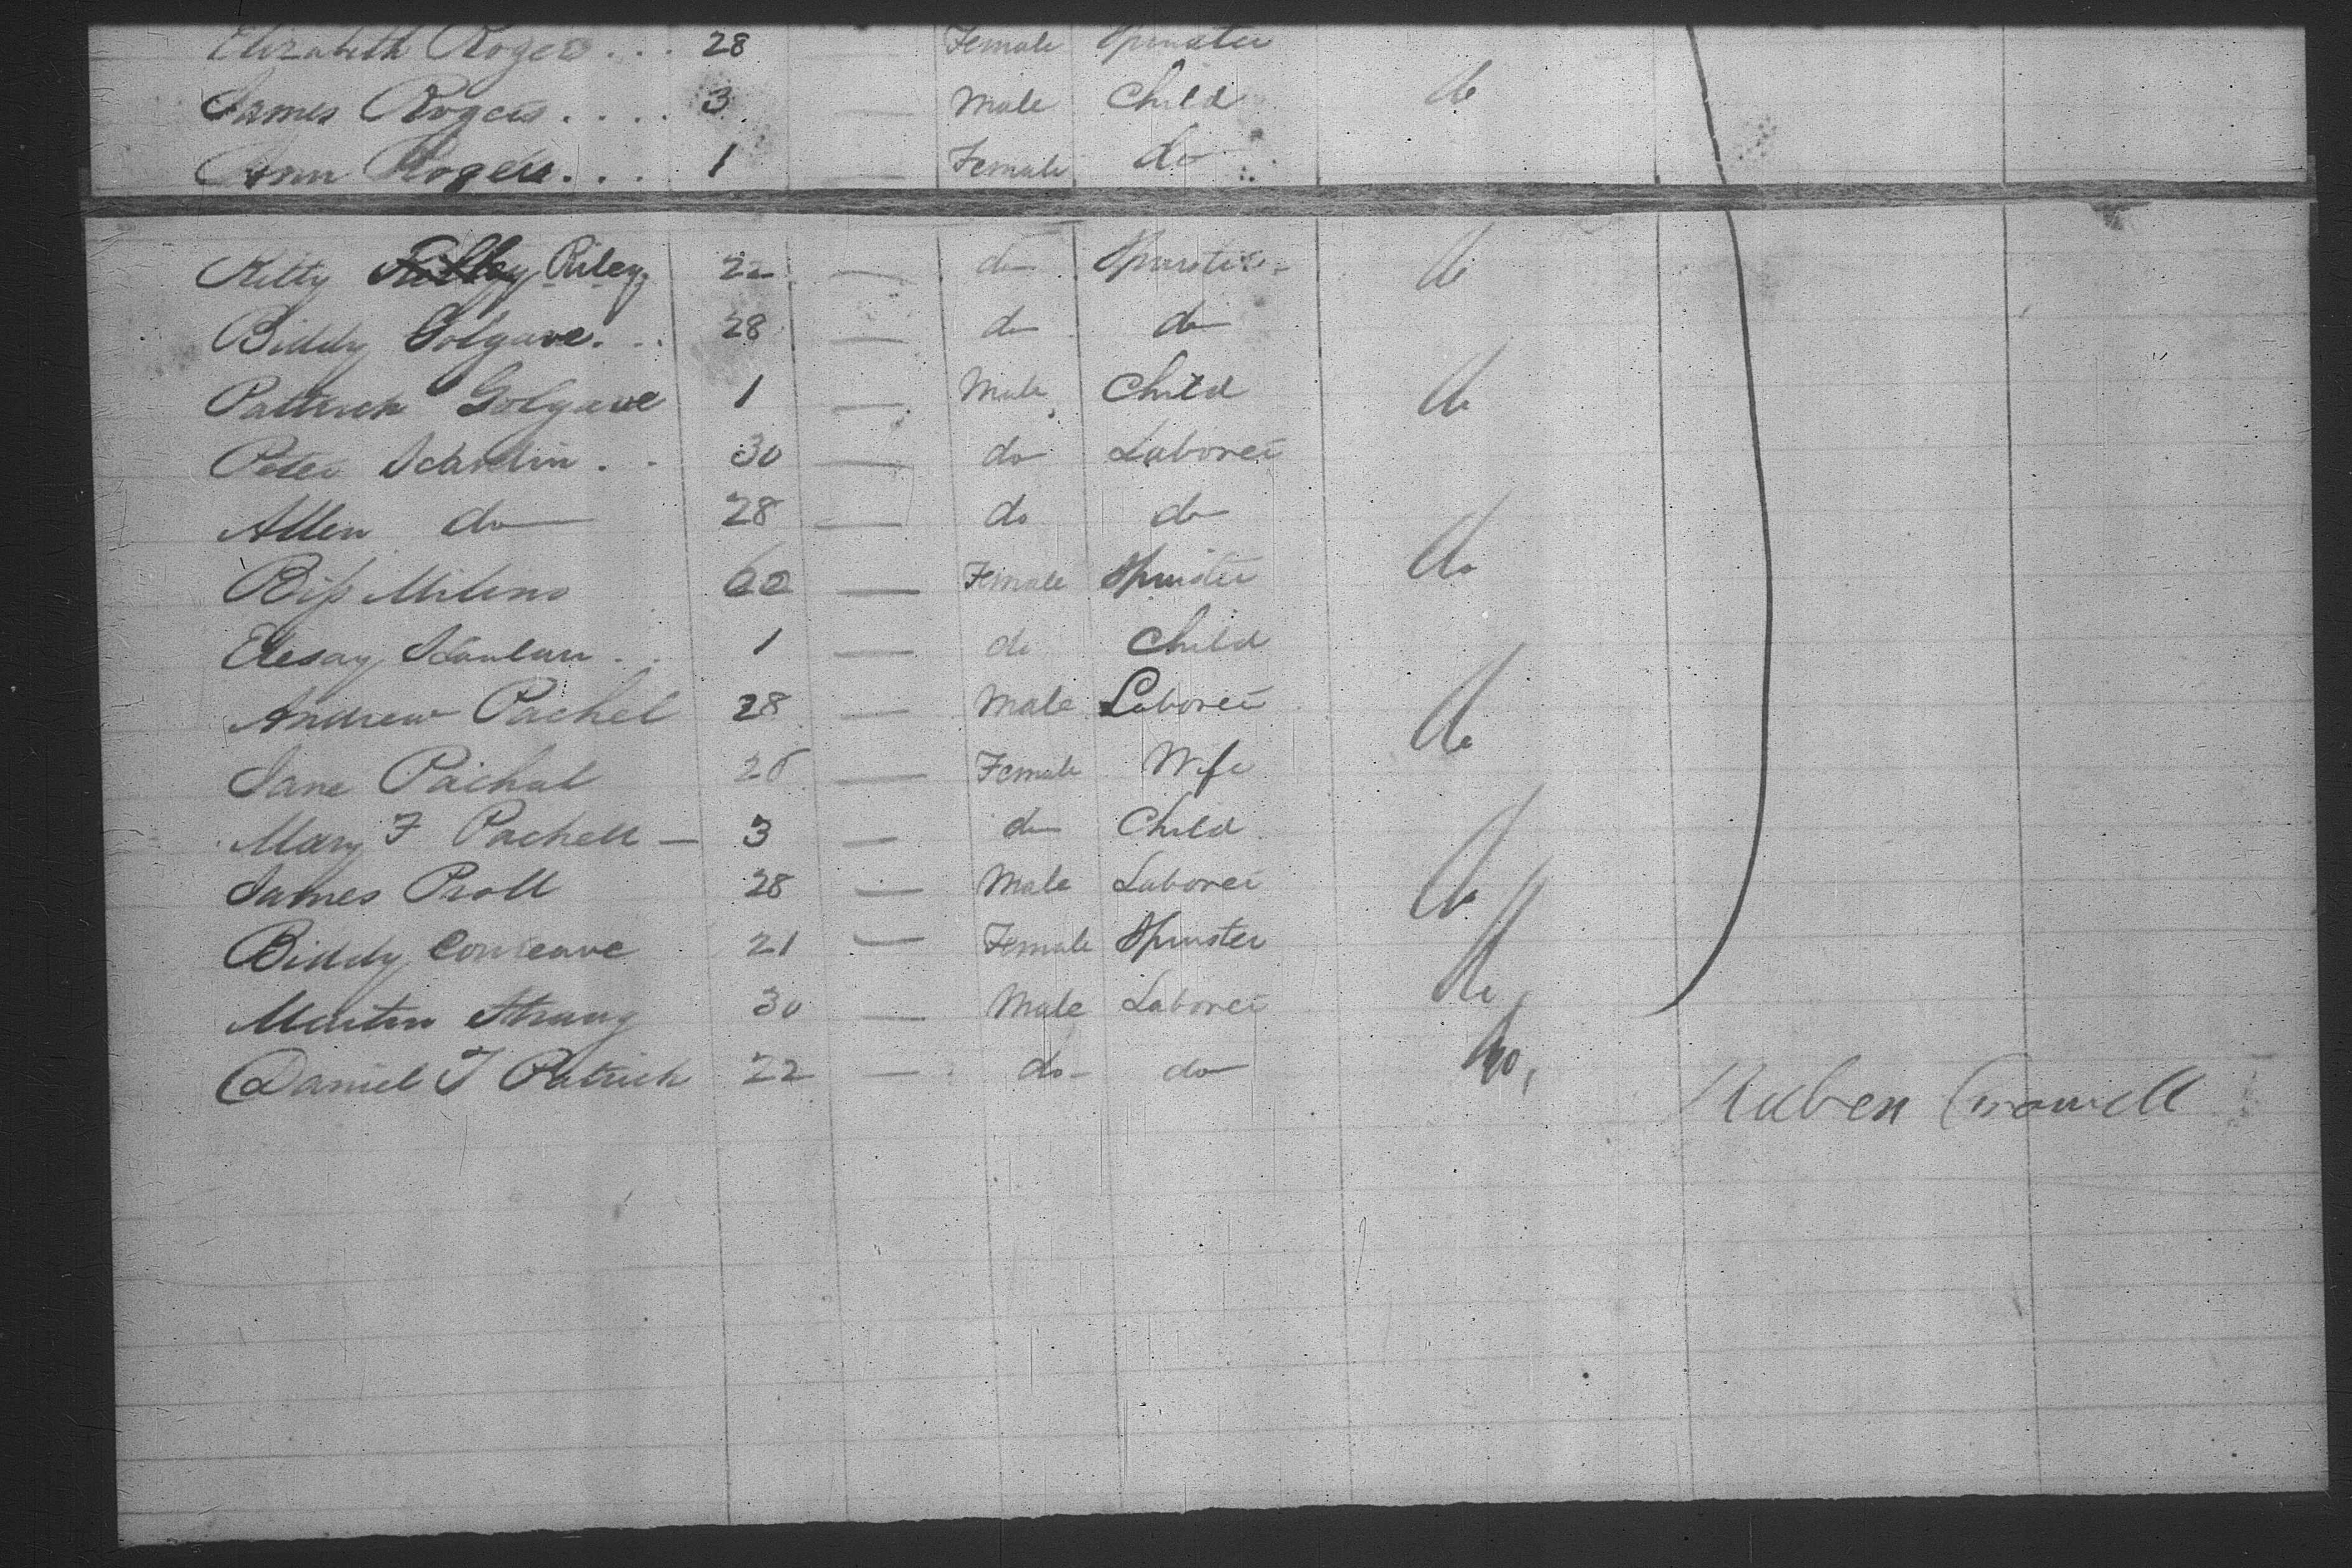 Elizabeth Rogers . . . 28 Female Spinster
James Rogers . . . . 3 — Male Child do
Ann Rogers . . . 1 — Female do
Kitty Riley 22 — do Spinster do
Biddy Golgave . . 28 — do do
Pattrick Golgave 1 — Male Child do
Peter . . 30 — do Laborer
Allen do 28 — do do do
Biss Milens 60 — Female Spinster
1 — do Child
Andrew Pachel 28 — Male Laborer do
Jane Pachal — Female Wife
Mary F Pachell — 3 — do Child
James Proll 28 — Male Laborer do
Biddy 21 — Female Spinster
Martin Strang 30 — Male Laborer do
Daniel J Patrick 22 — do do do
Ruben Crowell